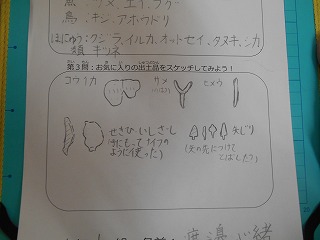 魚:サメ、エイ、フグ
鳥:キジ、アホウドリ
ほにゅう類:クジラ、イルカ、オットセイ、タヌキ、シカ
キツネ
第3問:お気に入りの出土品をスケッチしてみよう!
コウイカ サメ ヒメウ
せきひ いしさじ
(手にもってナイフの
ように使った)
矢じり
(矢の先につけて
とばした)